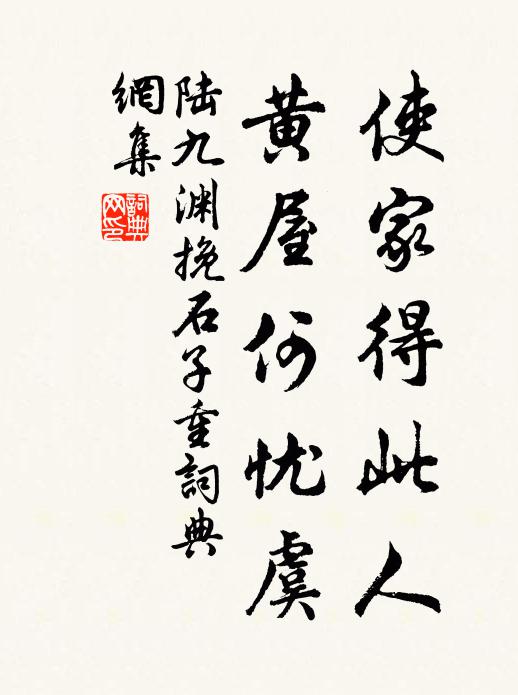 使家得此人
黄屋何忧虞
陆九渊挽石子重詞典
網集
詞典
网印